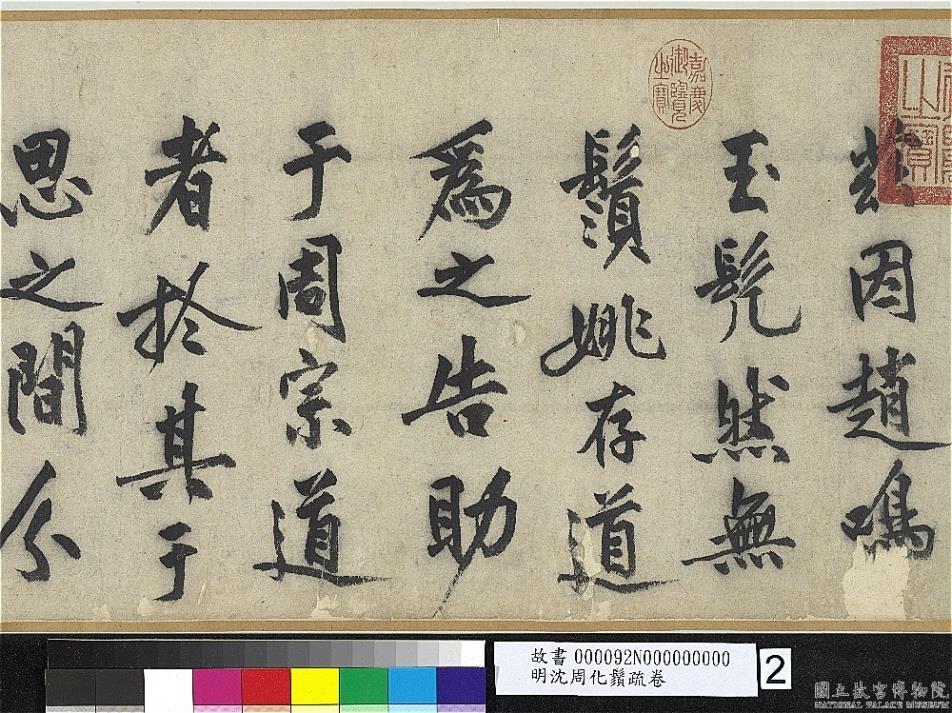 茲因趙鳴
玉髠然無
鬚姚存道
爲之告助
于周宗道
者於其于
思之間分
嘉慶御覽之寶
故書 000092N000000000
明沈周化鬚疏卷
2
國立故宮博物院
NATIONAL PALACE MUSEUM